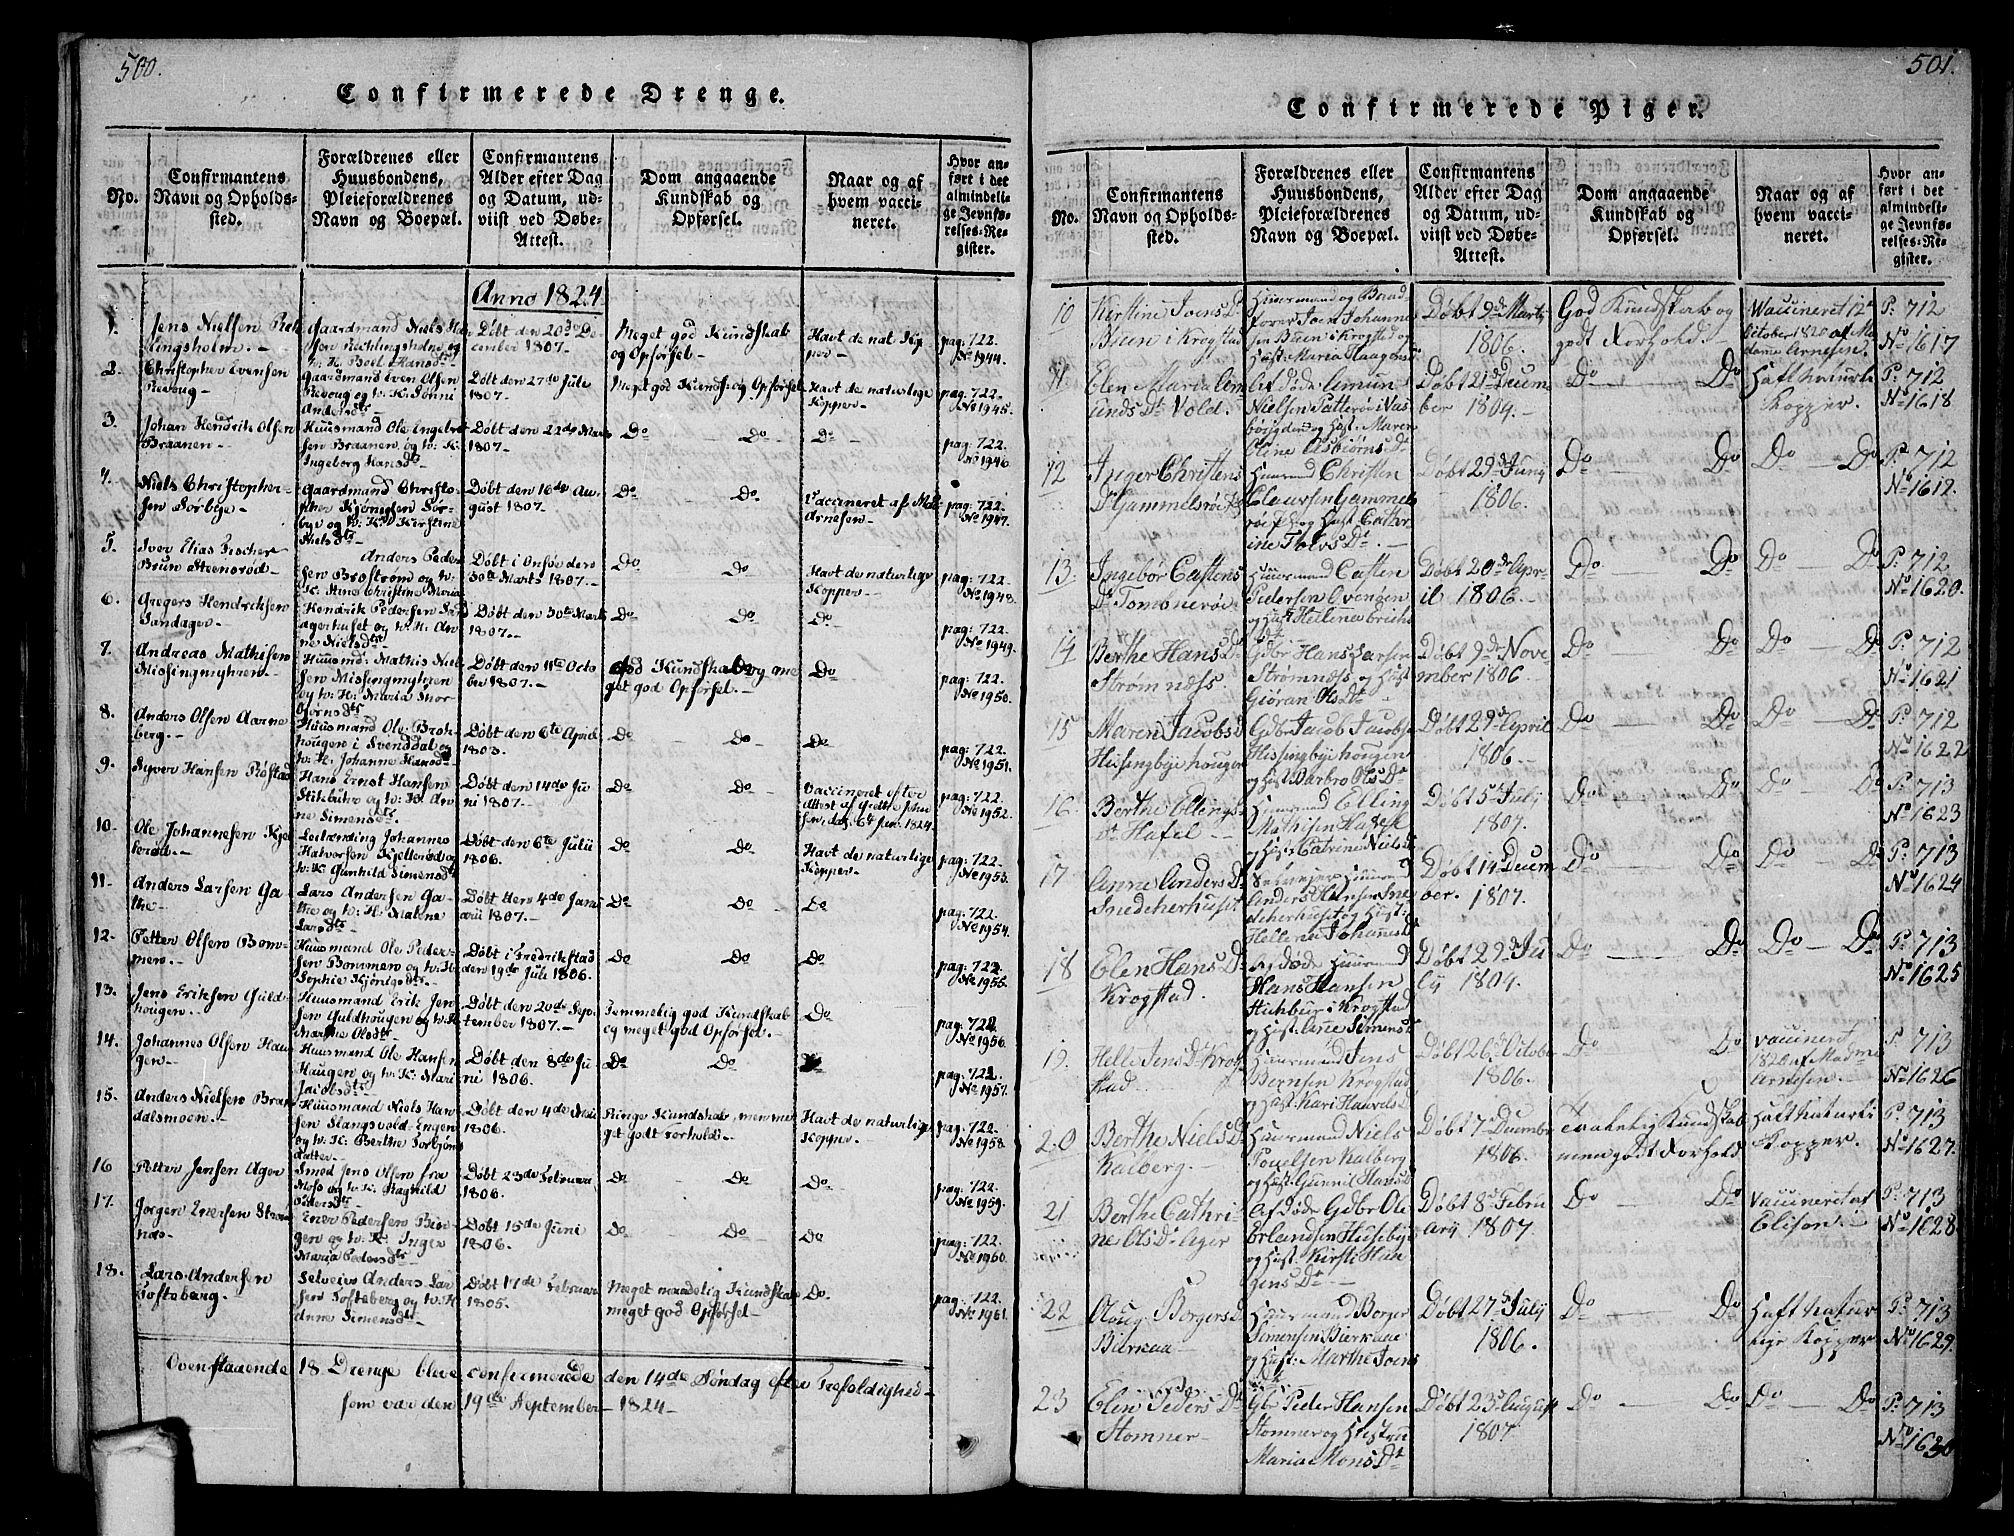 500.
Confirmerede Drenge.
No.
Confirmantens
Navn og Opholds-
sted.
Forældrenes eller
Huusbondens,
Pleieforældrenes
Navn og Boepæl.
Confirmantens
Alder efter Dag
og Datum, ud-
viist ved Døbe-
Attest.
Dom angaaende
Kundskab og
Opførsel.
Naar og af
hvem vacci-
neret.
Hvor an-
ført i det
almindeli-
ge Jevnfø-
relses-Re-
gister.
Anno 1824
1.
Jens Nielsen
lingsholm.
Gaardmand Niels
og w. K. Boel Hansdtr
Døbt den 20de De-
cember 1807.
Meget god Kundskab
og Opførsel.
Havt de nat. Kop
per
pag: 722.
No 1944.
2.
Christopher Evensen
Revoug
Gaardmand Even Olsen
Revoug og w. K. Tonni
Andersdtr
Døbt den 27de Julii
1807.
Meget god Kundsk: og Opførsel
Havt de naturlige
Kopper
pag: 722.
No 1945.
3.
Johan Hendrik Olsen
Braanen
Huusmand Ole Engebret
sen Braanen og w. K.
Ingeborg Hansdtr
Døbt den 22de Marts
1807.
Do Do
Do
pag: 722.
No 1946
4.
Niels Christopher-
sen Sørbye
Gaardmand Christo-
pher Kjønigsen Sør-
bye og w. K. Kirstine
Nielsdtr
Døbt den 16de Au-
gust 1807.
Do Do
Vaccineret af Mad.
Arnesen
pag: 722.
No 1947.
5.
Iver Elias Fischer
Bruun Steensrød
Anders Peder-
sen Brostrøm og w.
K. Stine Christine Maria
Døbt i Onsøe den
30te Marts 1807.
Do Do
Havt de naturlige
Kopper
pag: 722.
No 1948.
6.
Gregers Hendriksen
Sandager
Hendrik Pedersen Sand
agerhuset og w. K. An-
ne Nielsdtr
Døbt den 30te Marts
1807.
Do Do
Do
pag: 722.
No 1949.
7.
Andreas Mathisen
Missingmyhren
Huusmd: Mathis Niel-
sen Missingmyhren
og w. K. Maria Thor-
bjørnsdtr
Døbt den 11te Octo-
ber 1807.
God Kundskab og me-
get god Opførsel.
Do
pag: 722.
No 1950.
8.
Anders Olsen Aarne
berg.
Huusmand Ole Broh-
hougen i Svenddal og
w. K. Johanne Hansdtr
Døbt den 6te April
1803.
Do Do
Do
pag: 722.
No 1951.
9.
Syver Hansen Prøstad
Hans Ernst Hansen
Stikbuhr og w. K. An-
ne Simensdtr
Døbt den 14de Ju
ni 1807.
Do Do
Vaccineret efter
Attest af Grethe Johne
sen, dat. 6te Jun: 1824.
pag: 722.
No 1952.
10.
Ole Johannesen Kjel-
lerød
Leilænding Johannes
Halvorsen Kjellerød og
w. K. Gunhild Simensdtr
Døbt den 6te Julii
1806.
Do Do
Havt de naturlige
Kopper
pag: 722.
No 1953.
11.
Anders Larsen Ga-
the
Lars Andersen Ga-
the og w. K. Malene
Larsdtr
Døbt den 4de Janu
arii 1807.
Do Do
Do
pag: 722.
No 1954.
12.
Petter Olsen Bom-
men.
Huusmand Ole Peder-
sen Bommen og w. K.
Sophie Kjønigsdtr
Døbt i Fredrikstad
den 19de Juli 1806.
Do Do
Do
pag: 722
No 1955.
13.
Jens Eriksen Guld-
hougen
Huusmand Erik Jen-
sen Guldhougen og w. K.
Marthe Olsdtr
Døbt den 20de Sep-
tember 1807.
Temmelig god Kundskab
og meget god Opførsel.
Do
pag: 722
No 1956.
14.
Johannes Olsen Hau-
gen
Huusmand Ole Hansen
Haugen og w. K. Mari
Jacobsdtr
Døbt den 8de Ju
ni 1806.
Do Do
Do
pag: 722
No 1957.
15.
Anders Nielsen Bran
dalsmoen
Huusmand Niels Han-
sen Slangsvold-Engen
og w. K. Berthe Torbjørns
datter
Døbt den 4de Mai
1806.
Ringe Kundskab, men me
get godt Forhold.
Havt de naturlige
Kopper
pag: 722.
No 1958.
16
Petter Jensen Ager
Smed Jens Olsen fra
Moss og w. K. Ragnild
Pedersdtr
Døbt 23de Februari
1806.
Do Do
Do
pag: 722.
No 1959.
17.
Jørgen Enersen Strøm
næs
Ener Pedersen Bin-
gen og w. K. Inger
Maria Pedersdtr
Døbt 15de Juni
1806.
Do Do
Do
pag: 722.
No 1960.
18.
Lars Andersen
Tofteberg.
Selveier Anders Lar
sen Tofteberg og w. K.
Anne Simensdtr
Døbt 17de Februari
1805.
Meget maadelig Kundskab
meget god Opførsel
Do
pag: 722.
No 1961.
Ovenstaaende 18 Drenge bleve confirmerede den 14de Søndag efter Trefoldighed
som var den 19de September 1824
501.
Confirmerede Piger.
No.
Confirmantens
Navn og Opholds-
sted.
Forældrenes eller
Huusbondens,
Pleieforældrenes
Navn og Boepæl.
Confirmantens
Alder efter Dag
og Datum, ud-
viist ved Døbe-
Attest.
Dom angaaende
Kundskab og
Opførsel.
Naar og af
hvem vacci-
neret.
Hvor an-
ført i det
almindeli-
ge Jevnfø-
relses-Re-
gister.
10
Kirstine Joens Dr
Buen i Krogstad
Huusmand og Baad
fører Joen Johanne
sen Buen i Krogstad og
Hust. Maria Haagens
Døbt 9de Marty
1806.
God Kundskab og
godt Forhold.
Vaccineret 12te
October 1820 af Ma
dame Arnesen.
P: 712
No 1617
11
Elen Maria Am
unds Dr Vold.
Afdøde Amun
Nielsen
og Hust. Maren
Eline Asbiørns Dr
Døbt 21de Decem
ber 1804.
Do Do
Haft naturli
Kopper.
P: 712
No 1618
12
Inger Christens
Dr Gammelsrøe
Huusmand Christen
Claussen Gammels
røe og Hust. Cathr
ine
Døbt 29de Juny
1806.
Do Do
Do Do
P: 712
No 1619.
13.
Ingebor Castens
Dr Tombnerøe
Huusmand Casten
Pedersen
og Hust. Hellena
Døbt 20de Apr
il 1806.
Do Do
Do Do
P: 712
No 1620.
14
Berthe Hans Dr
Strømnæss.
Gdbr Hans Larsen
Strømnæss og Hust
Giøran Ols Dr
Døbt 9de Nove
mber 1806.
Do Do
Do Do
P: 712
No 1621
15
Maren Jacobs d
Hissingbyehougen
Gdbr Jacob Jacobse
Hissingbyehougen
og Hust Barbro Ols Dr
Døbt 29de April
1806.
Do Do
Do Do
P: 712
No 1622
16.
Berthe Ellings
Dr Hafel
Huusmand Elling
Mathisen Hafsel
og Hust. Catrine Niels d
Døbt 5de July
1807.
Do Do
Do Do
P: 713
No 1623
17
Anne Anders Dr
Snedcherhuset
Huusmand
Anders Hansen Sne
dcherhuset og Hust:
Hellena Johanns Dr
Døbt 14de Decem
ber. 1807.
Do Do
Do Do
P: 713
No 1624
18
Elen Hans Dr
Krogstad.
Afdøde Huusmand
Hans Hansen
i Krogstad
og Hust. Anne Simens d
Døbt 29de Ju
ly 1804.
Do Do
Do Do
P: 713
No 1625
19.
Helle Jens Dr Krog
stad.
Huusmand Jens
Bernsen Krogstad
og Hust. Kari
Døbt 26de Octobe
1806.
Do Do
Vaccinered
1820 af Madme
Arnesen.
P: 713
No 1626
20
Berthe Niels Dr
Kalberg.
Huusmand Niels
Pouelsen Kalberg
og Hust. Gunnil Hans d
Døbt 7de Decembr
1806.
Kundskab
men godt Forhold
Haft naturli
Kopper.
P: 713
No 1627.
21
Berthe Cathri
ne Ols Dr Ager
Afdøde Gdbr Ole
Erlandsen Huseby
og Hust. Kirsti Haa
gens Dr
Døbt 8de Febru
ary 1807.
Do Do
Vaccineret af
Elison.
P: 713
No 1628
22
Aloug Borgers d
Bærkaa
Huusmand Borger
Simensen Bierkaae
og Hust. Marthe Joens
Dr
Døbt 27de July
1806.
Do Do
Haft natur
lige Kopper
P: 713
No 1629.
23
Elen Peders Dr
Stomner
Gbr Peder Hansen
Stomner og Hustru
Maria Mons Dr
Døbt 23de August
1807
Do Do
Do Do
P: 713
No 1630